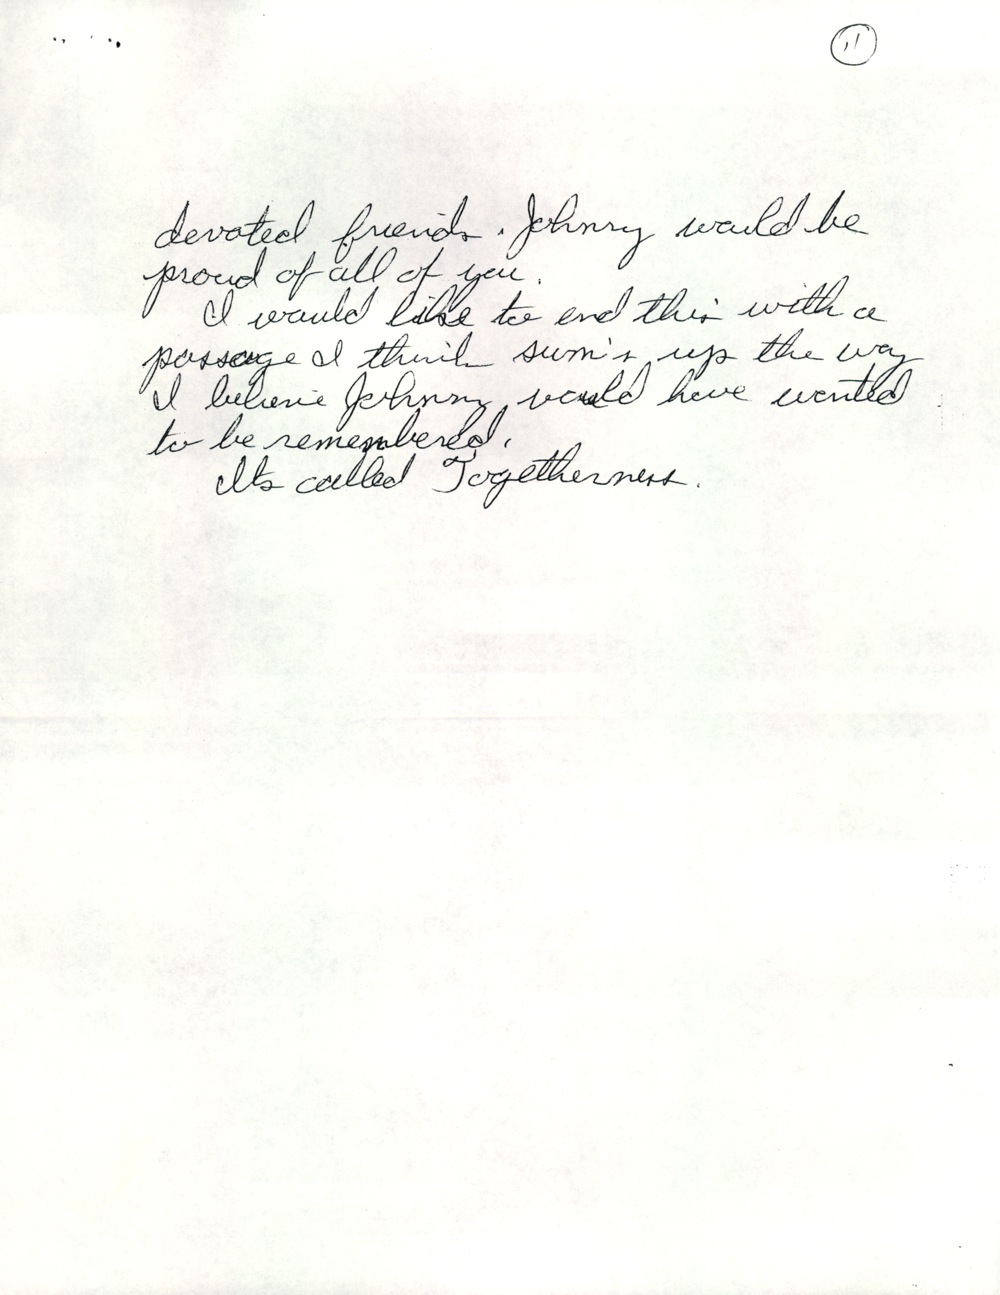 11
devoted friends. Johnny would be
proud of all of you.
I would like to end this with a
passage I think sum's up the way
I believe Johnny would have wanted
to be remembered.
Its called Togetherness.